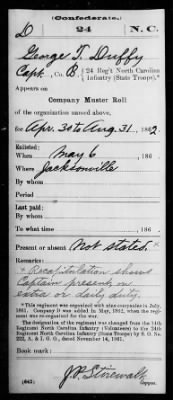 (Confederate.)
D 24 N.C.
George T. Duffy
Capt., Co. B, 24 Reg't North Carolina
Infantry (State Troops).*
Appears on
Company Muster Roll
of the organization named above,
for Apr. 30 to Aug. 31, 1862.
Enlisted:
When May 6, 186
Where Jacksonville
By whom
Period
Last paid:
By whom
To what time , 186
Present or absent Not stated. +
Remarks:
+ Recapitulation shows
Captain present on
extra or daily duty.
*This regiment was organized with nine companies in July,
1861. Company D was added in May, 1862, when the regiment was re-organized.
The designation of the regiment was changed from the 14th
Regiment North Carolina Infantry (Volunteers) to the 24th
Regiment North Carolina Infantry (State Troops) by S. O. No.
222, A. & I. G. O., dated November 14, 1861.
Book mark:
J. P. Stirewalt
(642) Copyist.